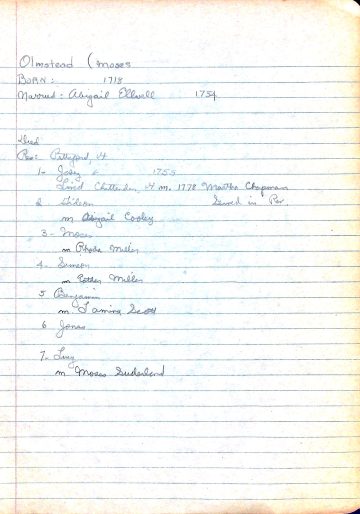 Olmstead (Moses
BORN: 1718
Married: Abigail Ellwell 1754
Died
Res: Pittsford, Vt
1- 1755
Lived Chittenden, Vt m. 1778 Martha Chapman
2 Gideon Served in Rev
m Abigail Cooley
3- Moses
m Rhoda Miller
4- Simeon
m Esther Miller
5 Benjamin
m Scott
6 Jonas
7- Lucy
m Moses Suderland